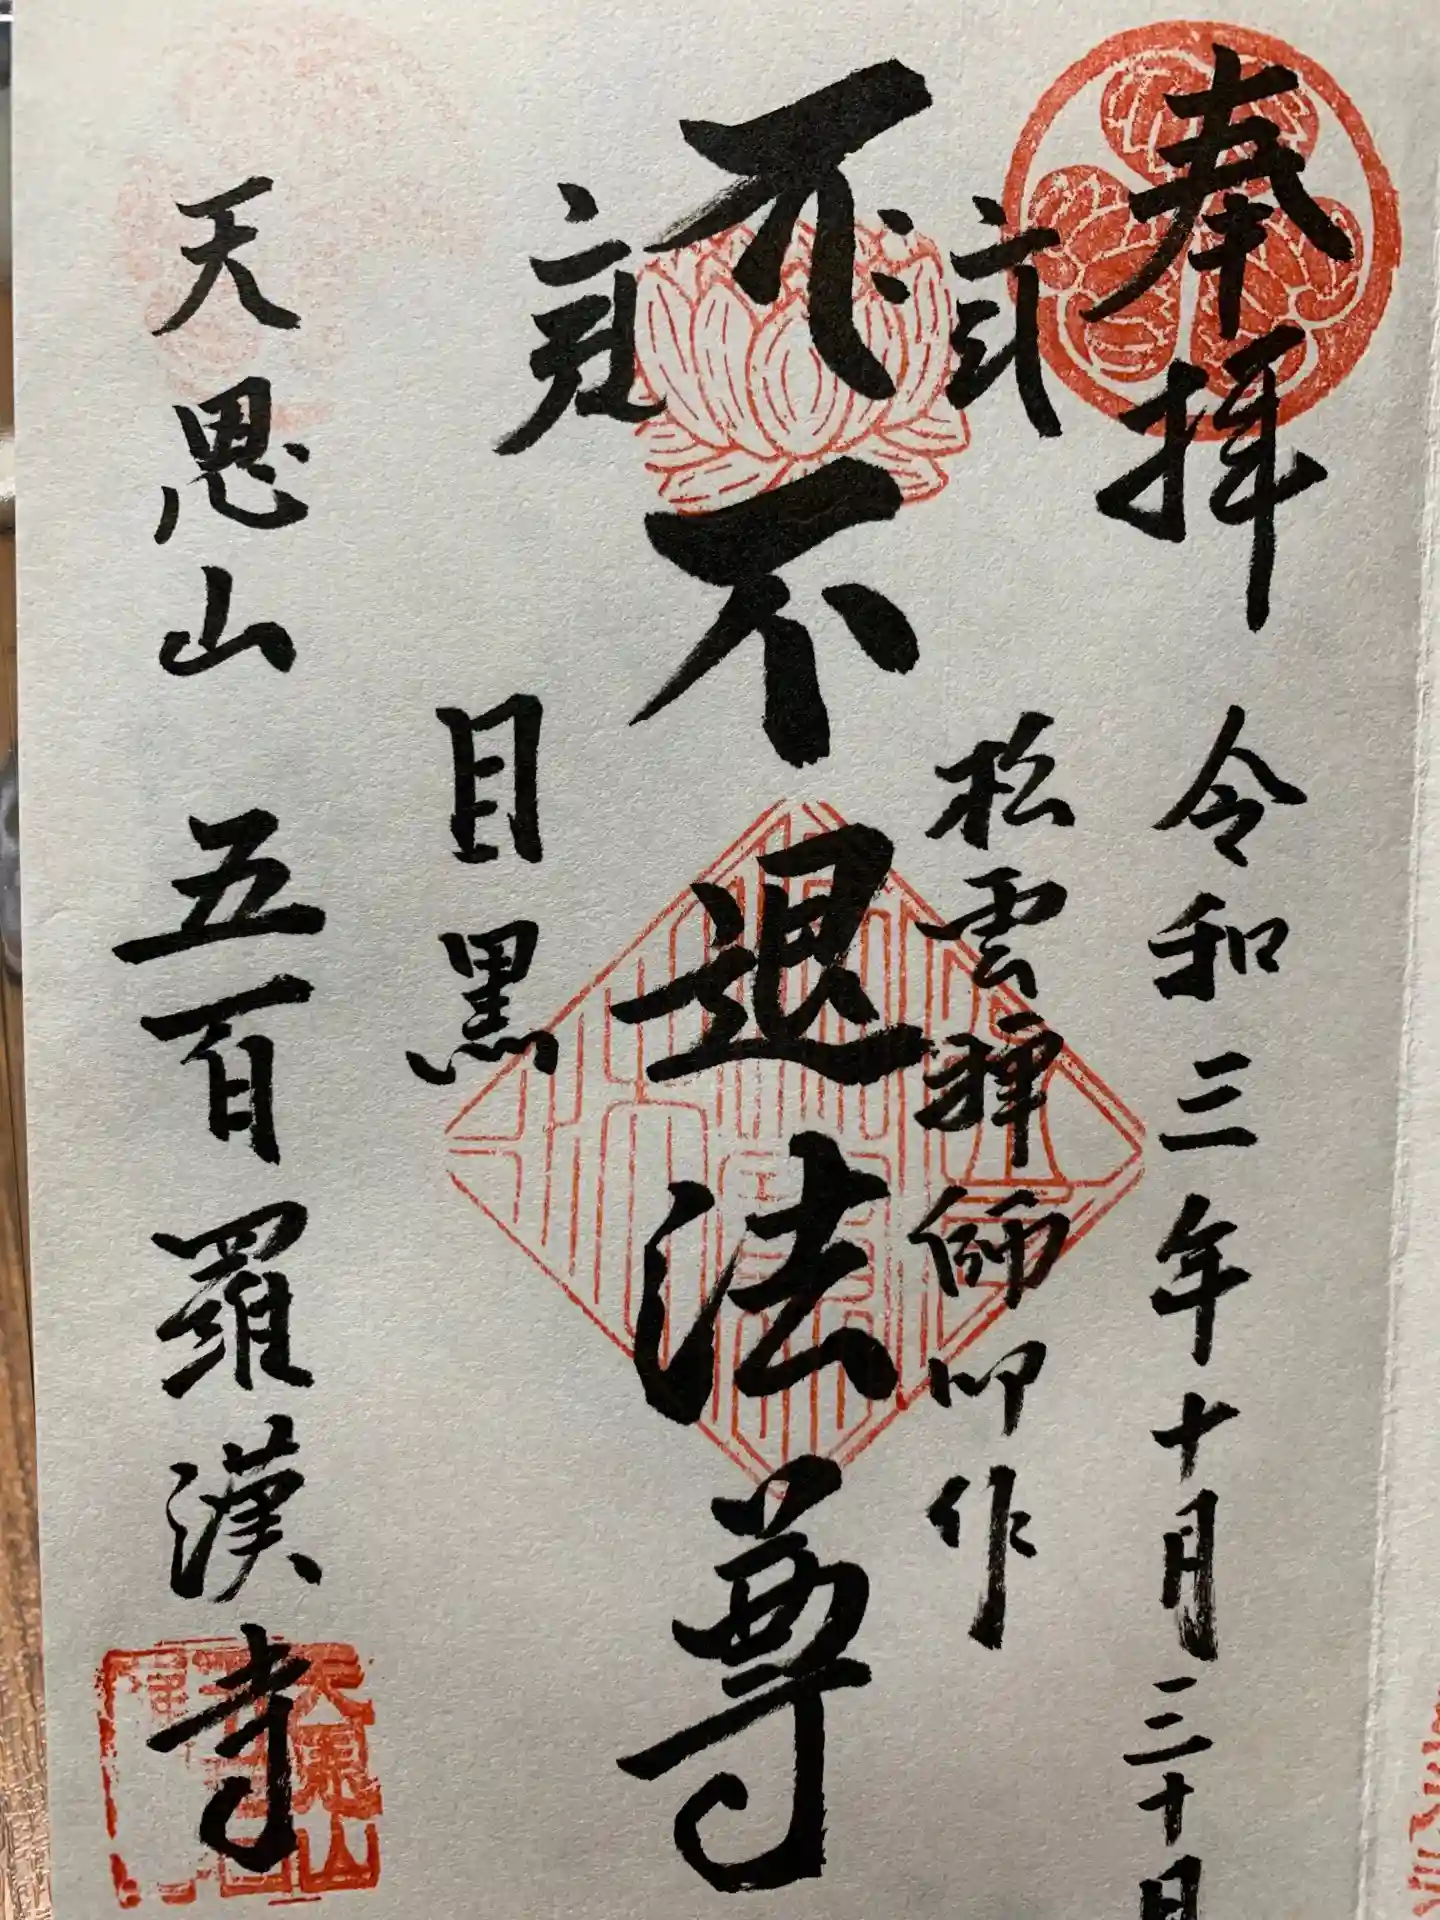 奉拝 令和三年十月三十日
松雲禅師御作
不退法尊
目黒
天恩山 五百羅漢寺
天恩山